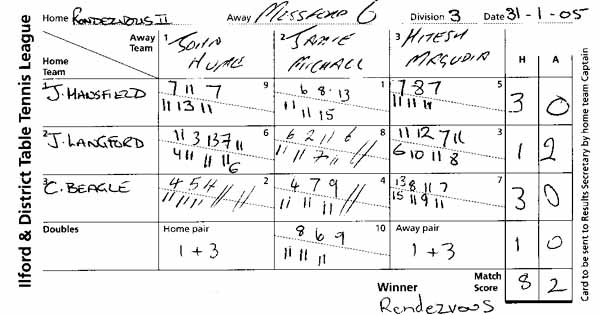 Ilford & District Table Tennis League
Home RENDEZVOUS II Away MOSSFORD G Division 3 Date 31-1-05
Away Team
Home Team
1 JOHN HUME
2 JAMIE MICHALL
3 HITESH MAGUDIA
H A
1 J. MANSFIELD
7 11 7 9
11 13 11
6 8 13 1
11 11 15
7 8 7 5
11 11 11
3 0
2 J. LANGFORD
11 3 13 7 11 6
4 11 11 11 6
6 2 11 6 8
11 11 7 11
11 12 7 11 3
6 10 11 8
1 2
3 C. BEAGLE
4 5 4 2
11 11 11
4 7 9 4
11 11 11
13 8 11 7 7
15 11 9 11
3 0
Doubles
Home pair
1 + 3
8 6 9 10
11 11 11
Away pair
1 + 3
1 0
Winner
Rendezvous
Match Score
8 2
Card to be sent to Results Secretary by home team Captain